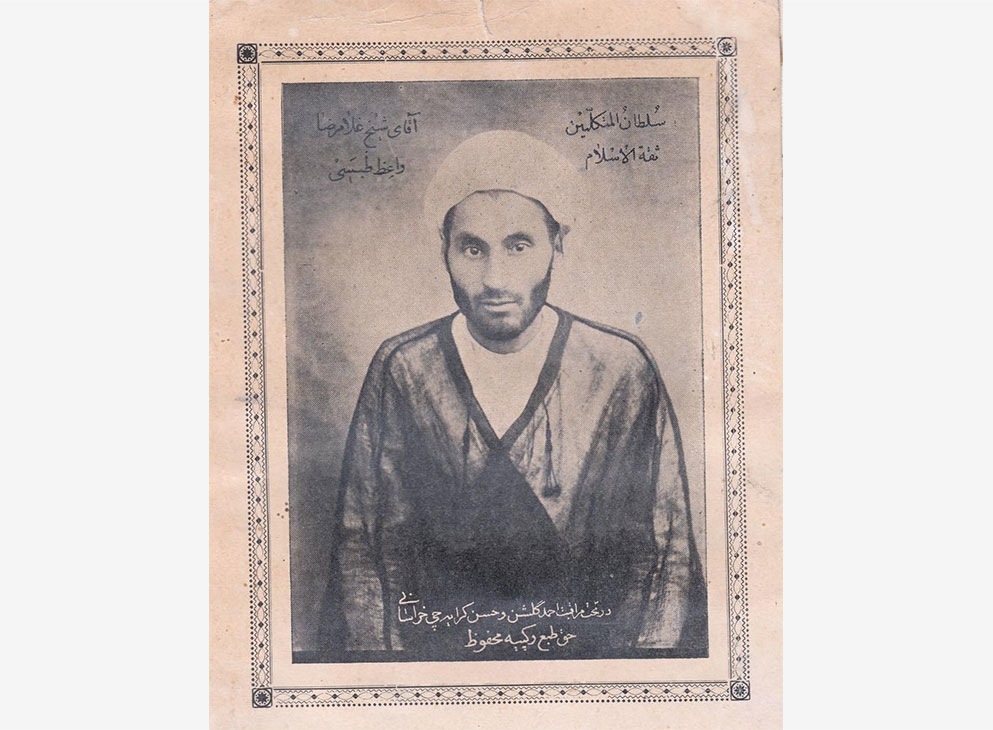 سُلطانُ المتکلّمین
ثقة الاسلام
آقای شیخ غلامرضا
واعظ طَبَسی
در تحت مراقبت احمد گلشن و حسن کرایه چی خراسانی
حق طبع و کپیه محفوظ